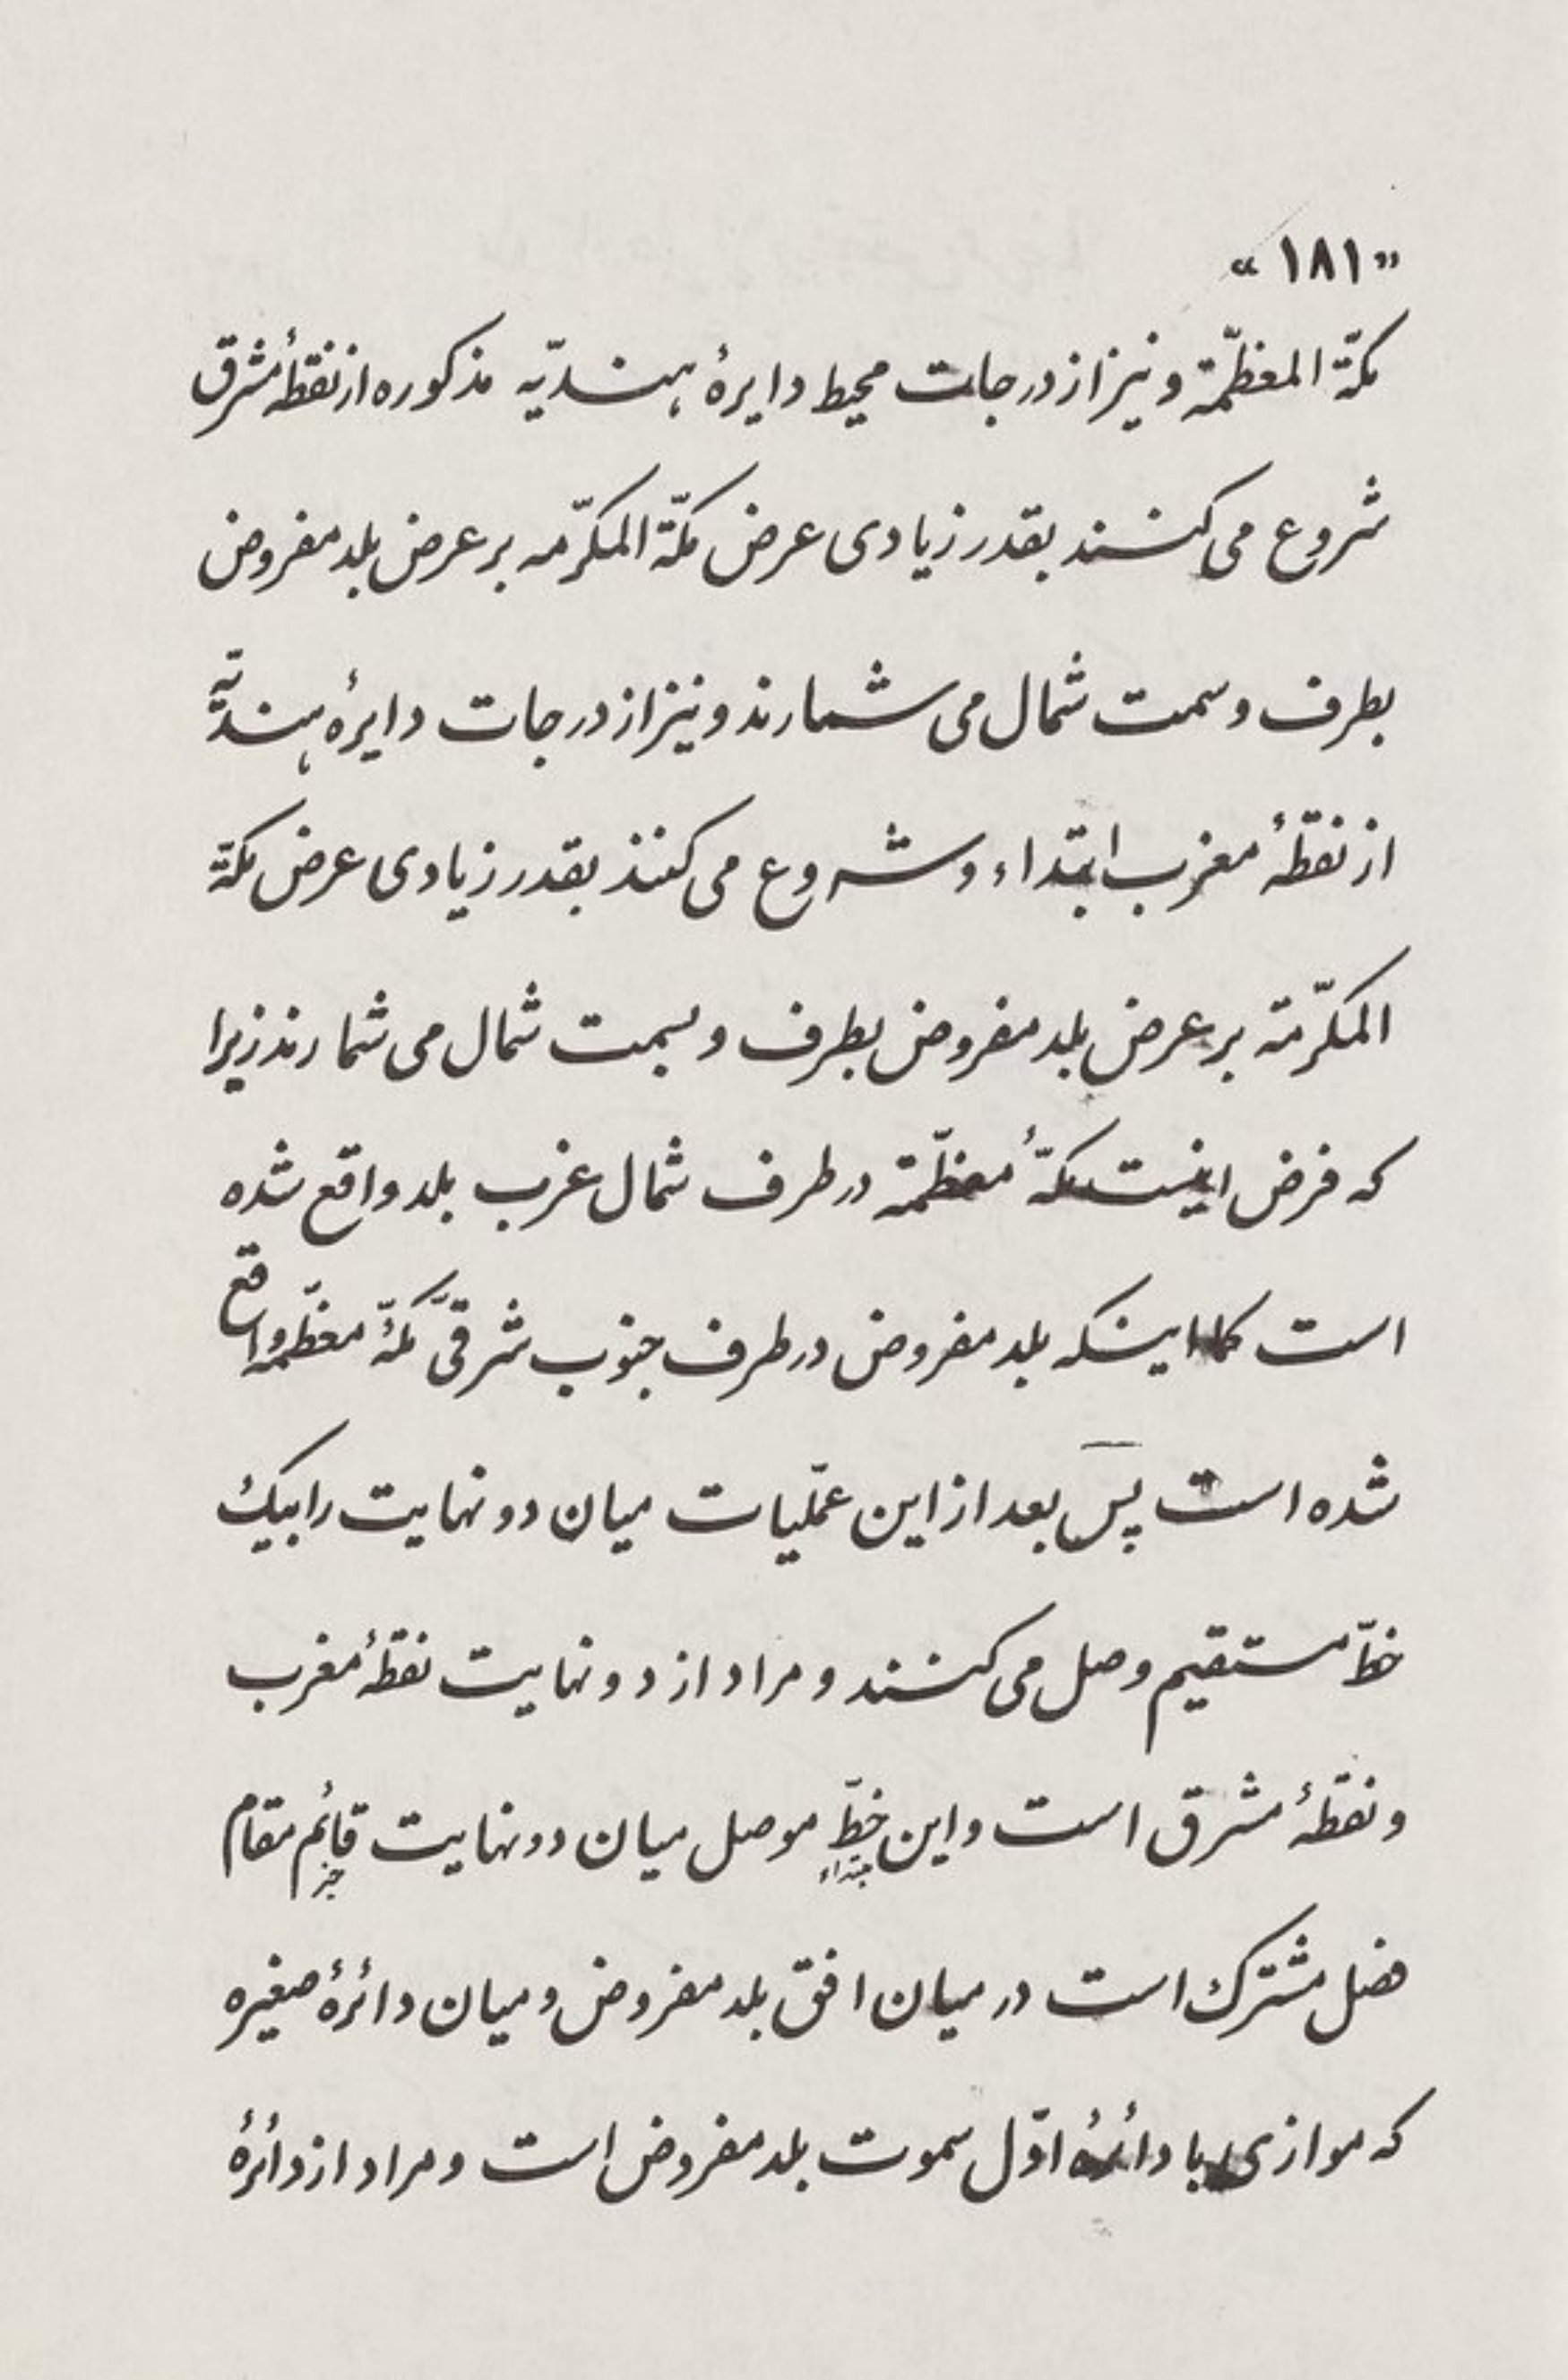 «۱۸۱»
مکّة المعظّمة و نیز از درجات محیط دایرهٔ هندیّه مذکوره از نقطهٔ مشرق
شروع می‌کنند بقدر زیادی عرض مکّة المکرّمه بر عرض بلد مفروض
بطرف و سمت شمال می‌شمارند و نیز از درجات دایرهٔ هندیّه
از نقطهٔ مغرب ابتداء و شروع می‌کنند بقدر زیادی عرض مکّة
المکرّمة بر عرض بلد مفروض بطرف و بسمت شمال می‌شمارند زیرا
که فرض اینست مکّهٔ معظّمة در طرف شمال غرب بلد واقع شده
است کما اینکه بلد مفروض در طرف جنوب شرقیّ مکّهٔ معظّمه واقع
شده است پس بعد از این عملّیات میان دو نهایت را بیک
خطّ مستقیم وصل می‌کنند و مراد از دو نهایت نقطهٔ مغرب
و نقطهٔ مشرق است و این خطّ موصل میان دو نهایت قائم مقام
مبتداء خبر
فصل مشترک است در میان افق بلد مفروض و میان دائرهٔ صغیره
که موازی با دائرهٔ اوّل سموت بلد مفروض است و مراد از دائرهٔ